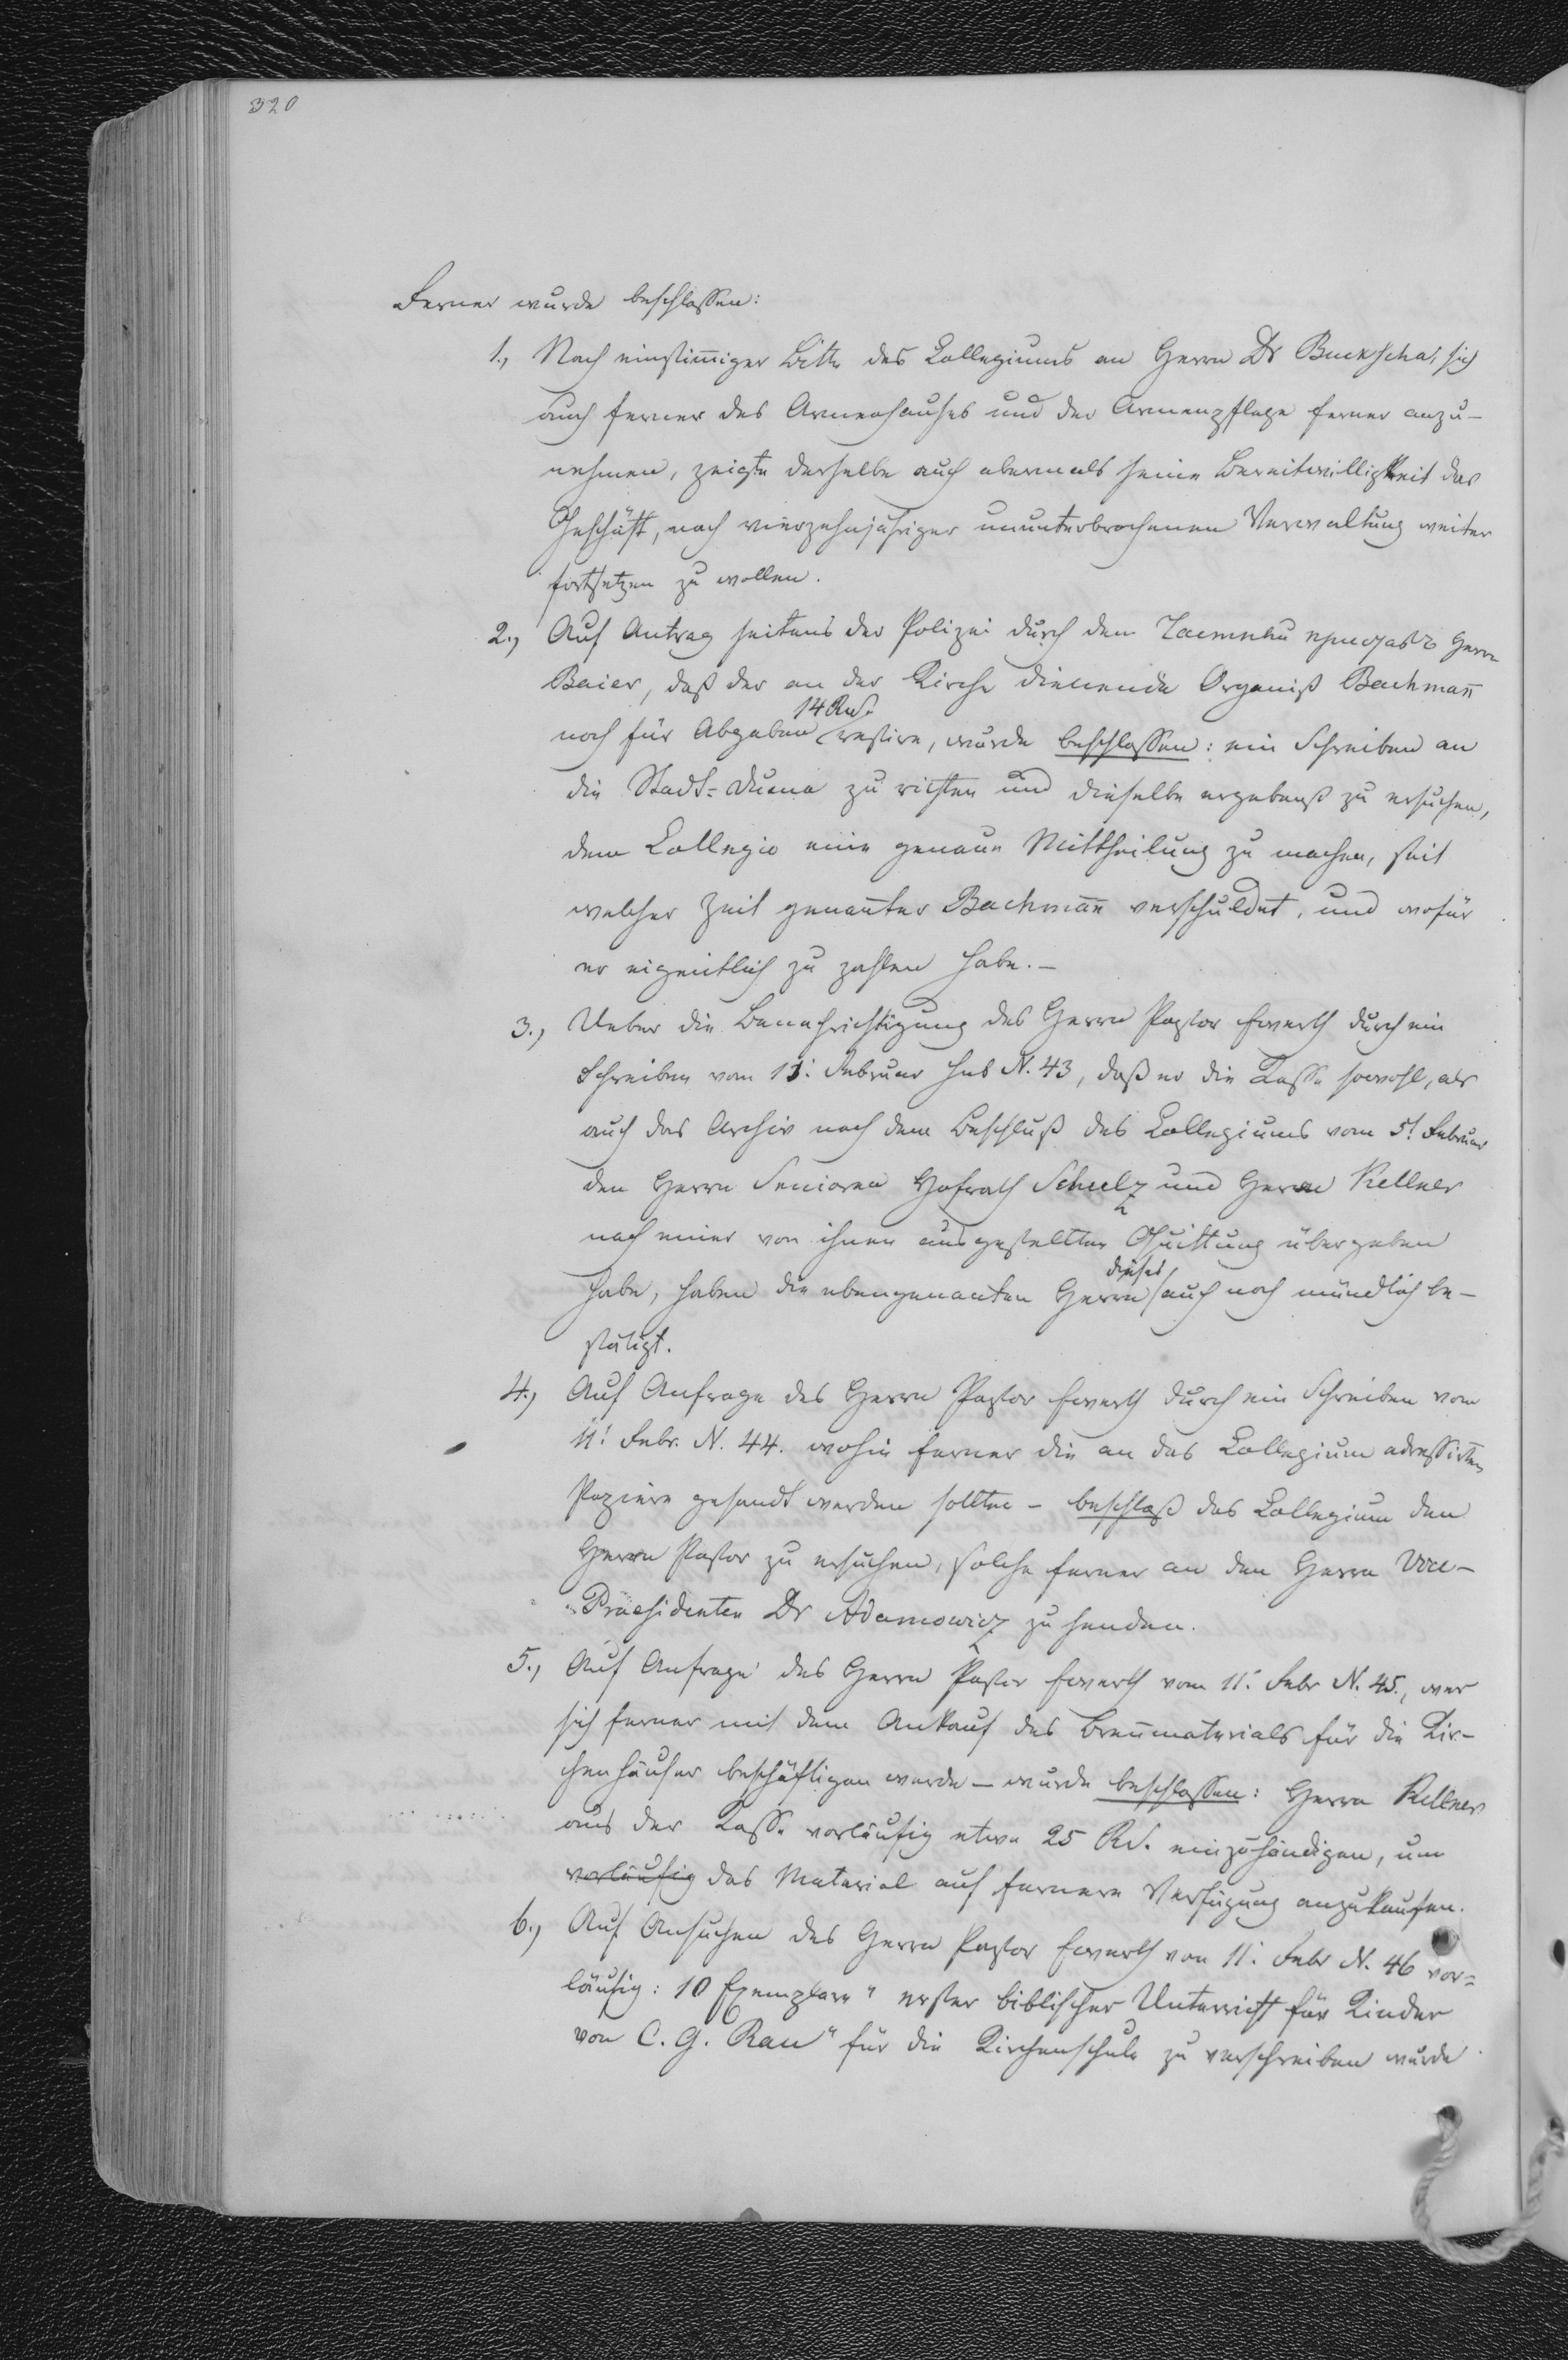 320
Ferner wurde beschlossen:
1., Nach einstim̄iger Bitte des Collegiums an Herrn Dr Buckscha, sich
auch ferner des Armenhauses und der Armenpflege ferner anzu-
nehmen, zeigte derselbe auch abermals seine Bereitwilligkeit das
Geschäft, nach vierzehnjähriger ununterbrochenen Verwaltung weiter
fortsetzen zu wollen.
2., Auf Antrag seitens der Polizei durch den Herrn
Baier, daß der an der Kirche dienende Organist Bachman̄
noch für Abgaben 14 Rub. restire, wurde beschlossen: ein Schreiben an
die Stadt-Duma zu richten und dieselbe ergebenst zu ersuchen,
dem Collegio eine genaue Mittheilung zu machen, seit
welcher Zeit genan̄ter Bachman̄ verschuldet, und wofür
er eigentlich zu zahlen habe.-
3., Ueber die Benachrichtigung des Herrn Pastor Everth durch ein
Schreiben vom 11. Februar sub N. 43, daß er die Kasse sowohl, als
auch das Archiv nach dem Beschluß des Collegiums vom 5t Februar
den Herrn Senioren Hofrath Schulz und Herrn Kellner
nach einer von ihnen ausgestellten Quittung übergeben
habe, haben die ebengenannten Herrn dieses auch noch mündlich be-
stätigt.
4., Auf Anfrage des Herrn Pastor Everth durch ein Schreiben vom
11t Febr. N. 44. wohin ferner die an das Collegium adressirten
Papiere gesandt werden sollten - beschloß das Collegium den
Herrn Pastor zu ersuchen, solche ferner an den Herrn Vice-
Praesidenten Dr Adamowicz zu senden.
5., Auf Anfrage des Herrn Pastor Everth vom 11t Febr N. 45., wer
sich ferner mit dem Ankauf des Bren̄materials für die Kir-
chenhäuser beschäftigen werde - wurde beschlossen: Herrn Kellner
aus der Kasse vorläufig etwa 25 Rub. einzuhändigen, um
vorläufig das Material auf fernere Verfügung anzukaufen.
6., Auf Ansuchen des Herrn Pastor Everth von 11t Febr N. 46 vor=
läufig: 10 Exemplare "erster biblischer Unterricht für Kinder
von C. G. Rau" für die Kirchenschule zu verschreiben wurde